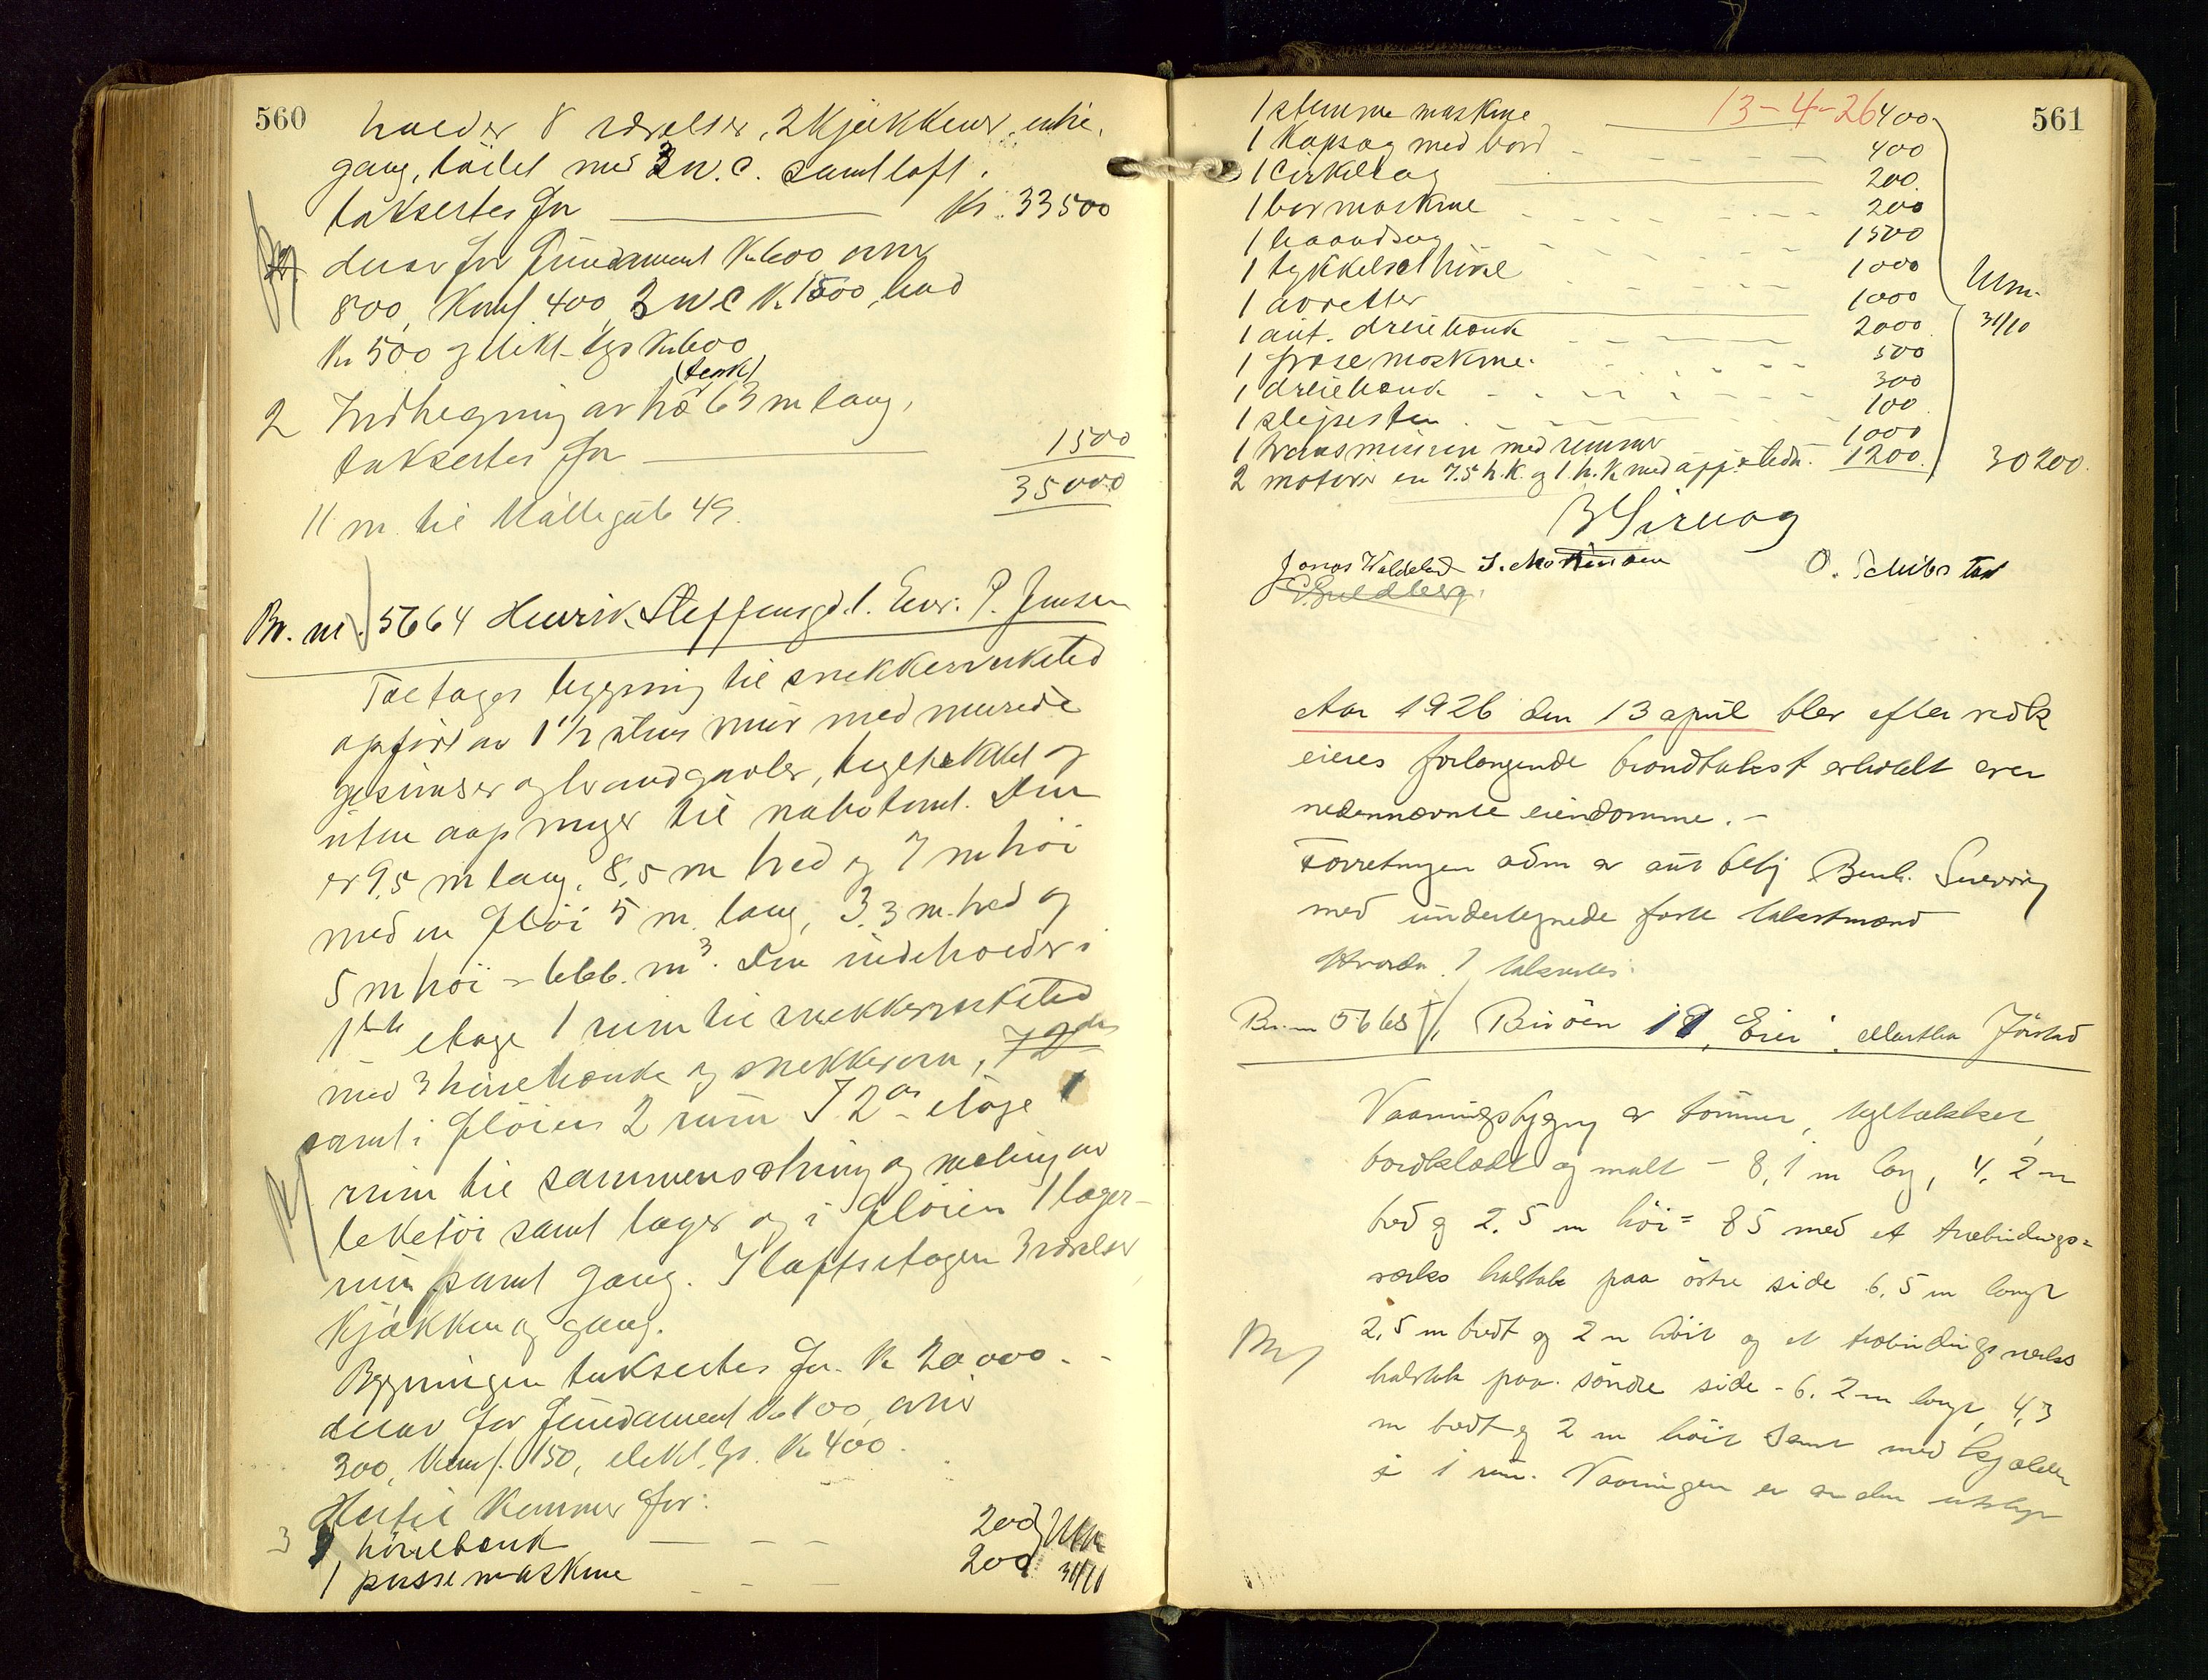 560
holder 8 værelser, 2 kjøkkener, entre,
gang, toilet med 3 W.C. samt loft.
takseres for Kr. 33500
derav for Fundament Kr 600 ovne
800, Komf. 400, 3 W C Kr. 1500, bad
Kr 500 og elekt. lys Kr 600
(tænk)
2 Indhegning av træ 63 m lang,
takseres for 1500
35000
11 m. til Møllegate 49.
Br. nr. 5664 Henrik Steffensgd. 1. Eier: P. Jensen
Toetages bygning til snekkerverksted
opført av 1 1/2 stens mur med murede
gesimser og brandgavler, tegltækket og
uten aapninger til nabotomt. Den
er 9,5 m lang, 8,5 m bred og 7 m høi
med en fløi 5 m. lang, 3,3 m. bred og
5 m høi = 666. m³. Den indeholder i
1ste etage 1 rum til snekkerverksted
med 3 høvelbænke og snekkerovn,
samt i fløien 2 rum I 2en etage 1
rum til sammensætning og maling av
leketøi samt lager og i fløien 1 lager-
rum samt gang. I loftsetagen 3 værelser
kjøkken og gang.
Bygningen takseres for Kr 20000. -
derav for Fundament Kr 800, ovne
300, Komf. 150, elekt. lys. Kr 400.
Hertil kommer for:
3 høvelbænk 200
1 pussemaskine 200
31/10
13-4-26
561
1 stemmemaskine 400
1 Kapsag med bord 400
1 Cirkelsag 200
1 bormaskine 200
1 baandsag 1500
1 tykkelseshøvel 1000
1 avretter 1000
1 aut. dreiebænk 2000
1 fræsemaskine 500
1 dreiebænk 300
1 slipesten 100
1 transmission med remmer 1000
2 motorer en 7.5 h.K. og 1 h.K med app. & ledn. 1200 30200.
31/10
B Sirevaag
Jonas Waldeland S. Mortensen O. Schibstad
E. Guldberg.
Aar 1926 den 13 april blev efter vedk
eieres forlangende brandtakst avholdt over
nedennævnte eiendomme. -
Forretningen adm av aut bestyr Bernh. Sneevig
med undertegnede faste takstmænd
Hvorda ! takseres:
Br. nr 5665 Birøen 19, Eier: Martha Jørstad
Vaaningsbygning av tømmer, tegltækket,
bordklædt og malt - 8,1 m lang, 4,2 m
bred og 2.5 m høi = 85 med et træbindings=
verks halvtak paa østre side 6,5 m langt
2,5 m bredt og 2 m høit og et træbindingsverks
halvtak paa søndre side - 6.2 m langt, 4,3
m bredt og 2 m høit samt med kjælder
i 1 rum. Vaaningen er av alm utstyr